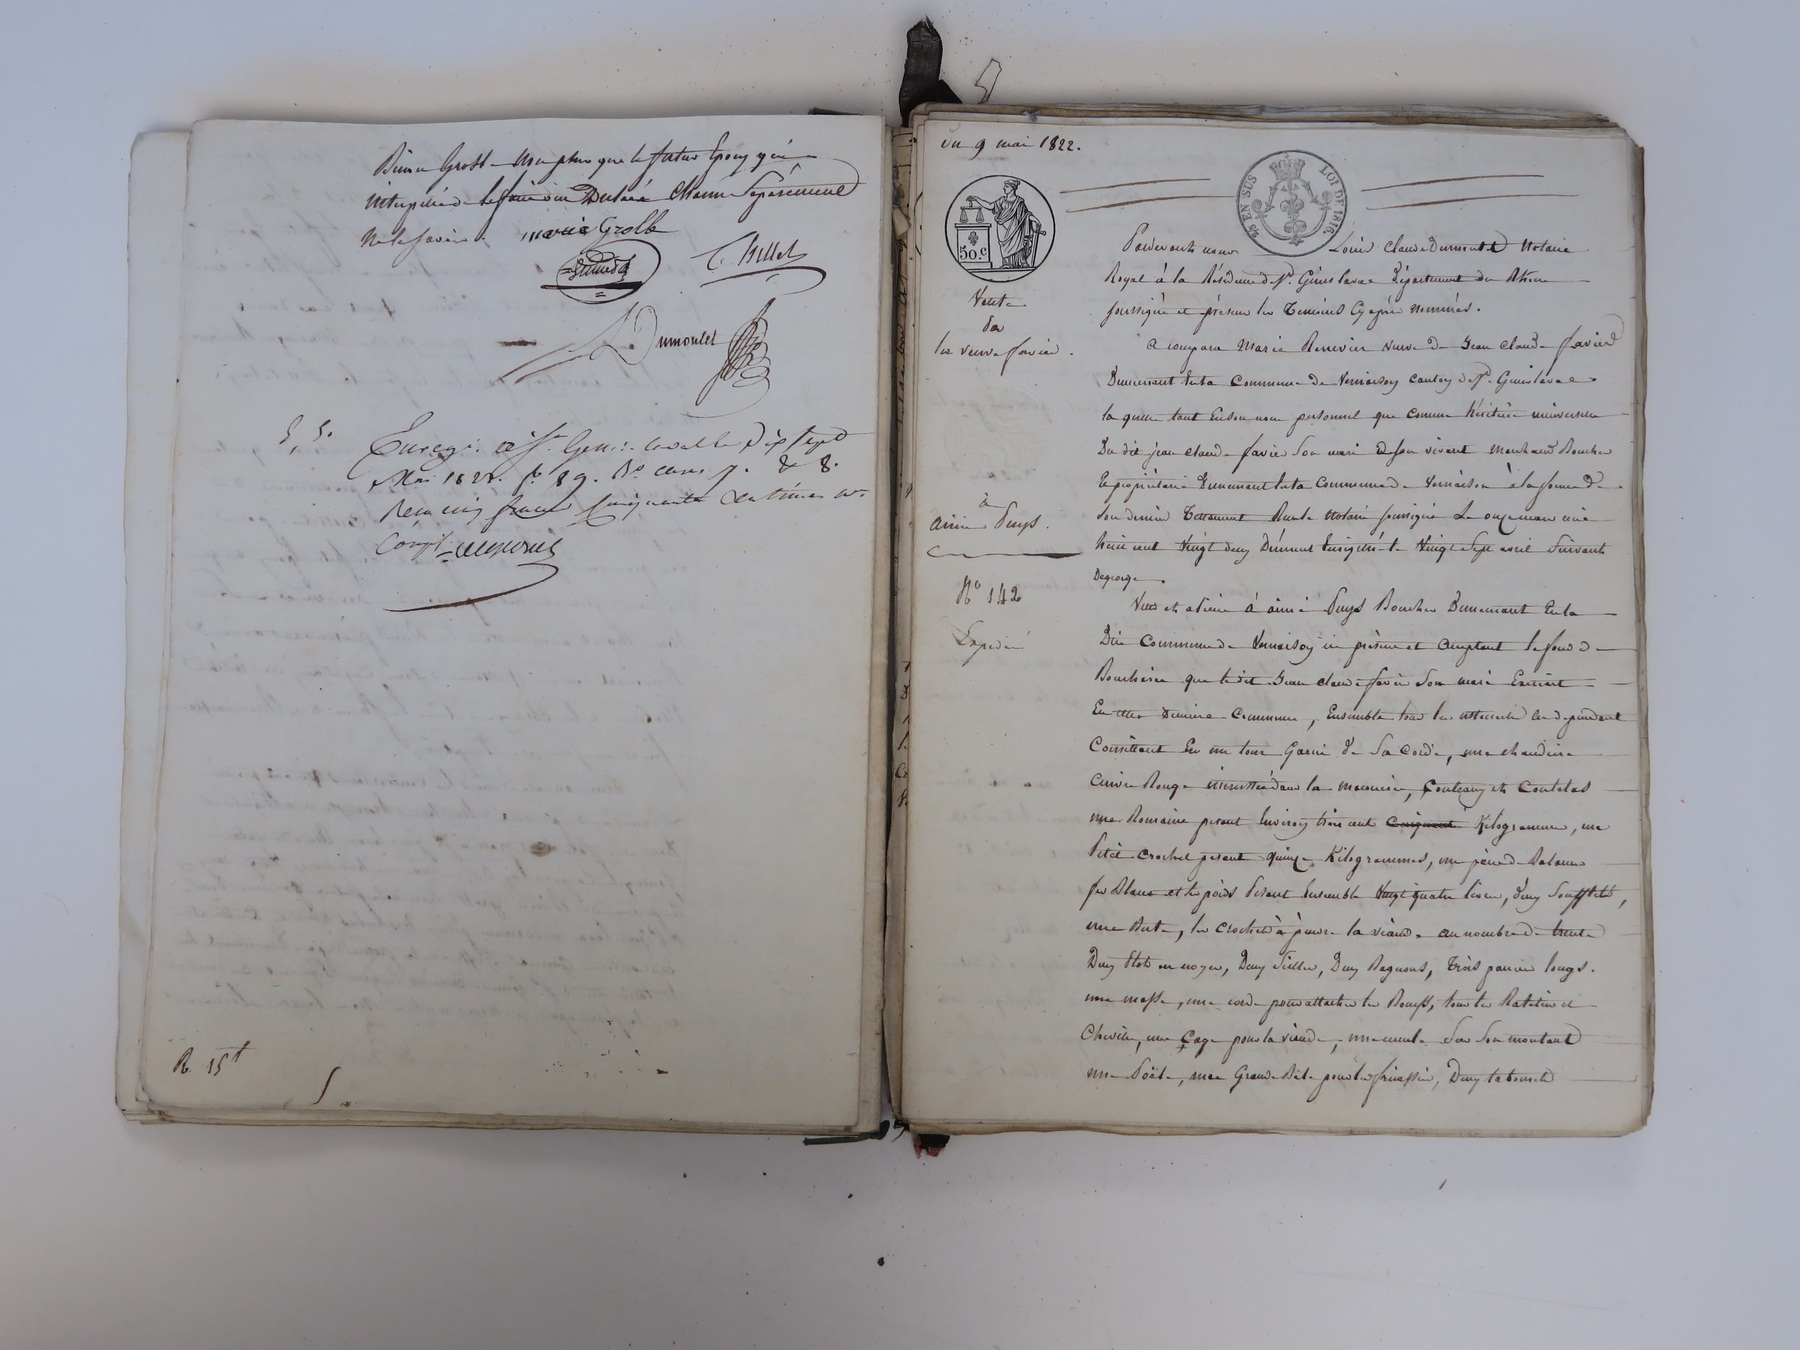 Pierre Grolle non plus que le futur Epoux qui
interpellés de le faire ont Déclaré chacun Séparément
ne le savoir.
marie Grolle
C. Billet
Dumoulet
Enreg. à St Genis Laval le Dix sept
Mai 1822. f° 89. R° cases 7. & 8.
Reçu cinq francs cinquante centimes
R 15f
Du 9 mai 1822.
25 EN SUS
LOI DE 1816
50.C
Vente
Par
la veuve favier.
à
aimé Puys.
N° 142
Expédié
Pardevant nous Louis Claude Dumoulet Notaire
Royal à la Résidence de St. Genis laval Département du Rhône
soussigné et présens les Témoins Cy après nommés.
A comparu Marie Renevier veuve de Jean claude favier
Demeurant en la Commune de Vernaison canton de St. Genis laval
la quelle tant En son nom personnel que comme héritière universelle
Du dit jean claude favier son mari de son vivant marchand Boucher
Et propriétaire Demeurant en la commune de Vernaison à la forme de
Son dernier Testament Reçu le Notaire soussigné Le onze mars mil
huit cent Vingt deux Dûment Enregistré le Vingt Sept avril Suivant
Vend et cède à aimé Puys Boucher Demeurant En la
Dite commune de Vernaison ici présent et acceptant le fond de
Boucherie que le dit Jean claude favier Son mari Exerçait
En cette Dernière Commune, Ensemble tous les ustensiles en dépendant
Consistant En un tour Garni de Sa Corde, une chaudière
Cuivre Rouge incrustée dans la maçonnerie, Couteaux et Coutelas
une Romaine pesant Environ trois cent Kilogrammes, un
Petit crochet pesant quinze Kilogrammes, une paire de Balance
fer Blanc et les poids Pesant Ensemble Vingt quatre livres, deux Soufflets,
une Buste, les crochets à pendre la viande au nombre de trente
Deux Plots en noyer, Deux Seilles, Deux Bagnons, trois paniers longs.
une masse, une corde pour attacher les Boeufs, tous les Rateliers et
Cheville, une Cage pour la viande, une meule Sur Son montant
une Poële, une Grande Pele pour les fricassées, Deux tabourets